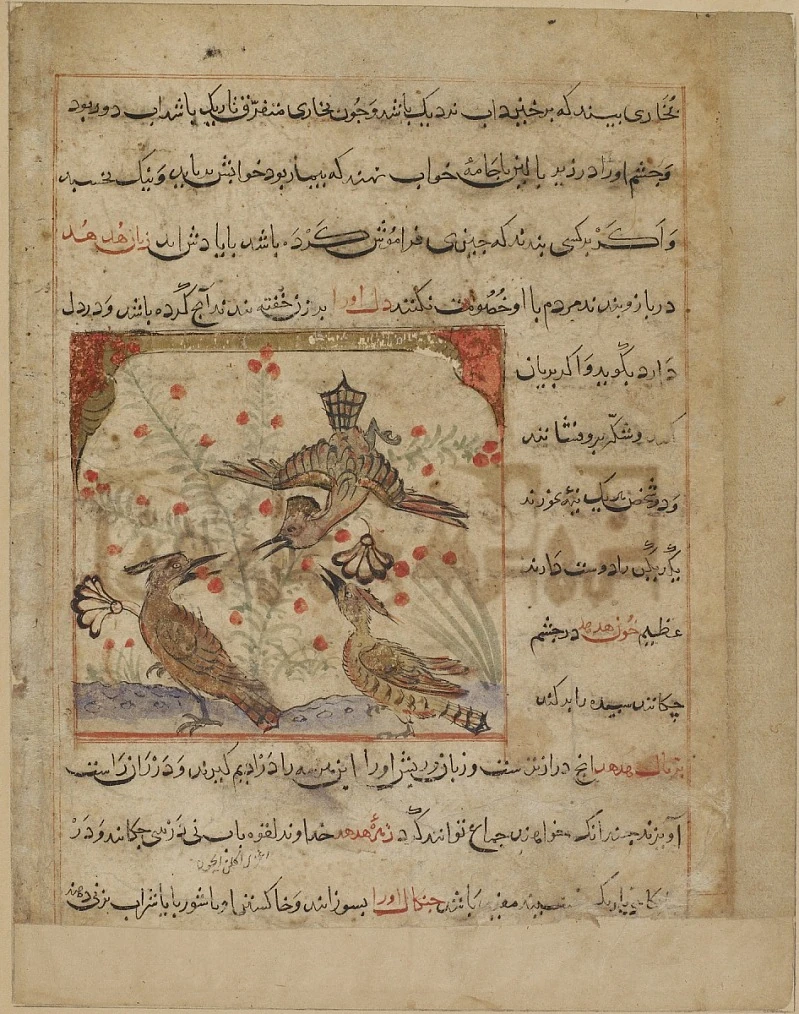 بخاری بیند که برخیزد اب نزدیک باشد وجون بخاری متفرق تاریک باشد اب دور بود
وجشم اورا در زیر بالین یا جامهٔ خواب نهند که بیمار بود خوابش بیاید ونیک بخسبد
واکر برکسی بندند که جیزی فراموش کرده باشد بایادش اید زبان هدهد
در بازو بندند مردم با او خصومت نکنند دل اورا بر زن خفته بندند آنج کرده باشد ودر دل
دارد بگوید واکر بریان
کنند وشکر برو فشانند
ودو شخص هر یک نیمهٔ بخورند
یکدیگر را دوست دارند
عظیم خون هدهد در جشم
جکانند سپیده را بر کند
هدهد انج دراز ترست و زبان وریش اورا این هر سه را در ادیم کیرند ودر ران راست
آویزند جندانک خواهند جماع توانند کرد زهرهٔ هدهد خداوند لقوه باب در بینی جکانند ودر
باشد جنکال اورا بسوزانند وخاکستر او با شوربا یا شراب بزنی دهند